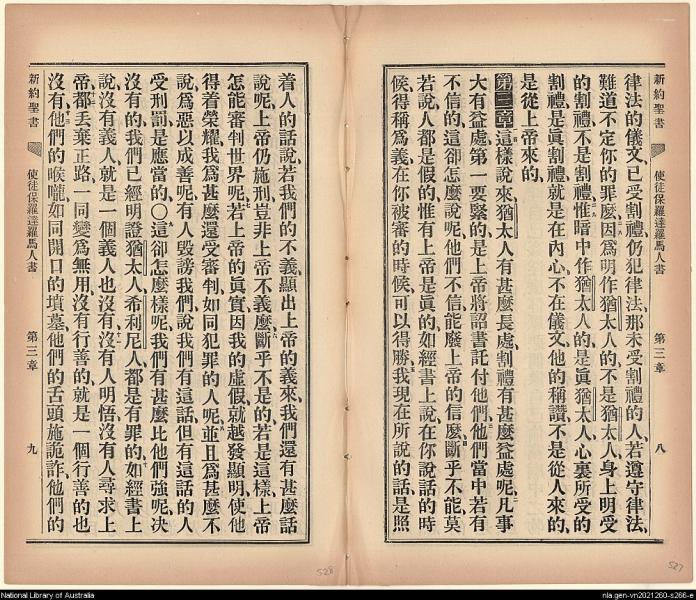 新約聖書
使徒保羅達羅馬人書
第三章
八
律法的儀文、已受割禮仍犯律法、那未受割禮的人、若遵守律法、
難道不定你的罪麽、因爲明作猶太人的、不是猶太人、身上明受
的割禮、不是割禮、惟暗中作猶太人的、是眞猶太人、心裏所受的
割禮、是眞割禮、就是在內心、不在儀文、他的稱讚、不是從人來的、
是從上帝來的、
第三章 這樣說來、猶太人有甚麽長處、割禮有甚麽益處呢、凡事
大有益處、第一要緊的、是上帝將詔書託付他們、他們當中若有
不信的、這卻怎麽說呢、他們不信、能廢上帝的信麽、斷乎不能、莫
若說、人都是假的、惟有上帝是眞的、如經書上說、在你說話的時
候、得稱爲義、在你被審的時候、可以得勝、我現在所說的話、是照
新約聖書
使徒保羅達羅馬人書
第三章
九
着人的話說、若我們的不義、顯出上帝的義來、我們還有甚麽話
說呢、上帝仍施刑、豈非上帝不義麽、斷乎不是的、若是這樣、上帝
怎能審判世界呢、若上帝的眞實、因我的虛假、就越發顯明、使他
得着榮耀、我爲甚麽還受審判、如同犯罪的人呢、並且爲甚麽不
說、爲惡以成善呢、有人毀謗我們、說我們有這話、但有這話的人
受刑罰是應當的○這卻怎麽樣呢、我們有甚麽比他們强呢、决
沒有的、我們已經明證猶太人希利尼人、都是有罪的、如經書上
說、沒有義人、就是一個義人也沒有、沒有人明悟、沒有人尋求上
帝、都丟棄正路、一同變爲無用、沒有行善的、就是一個行善的也
沒有、他們的喉嚨、如同開口的墳墓、他們的舌頭施詭詐、他們的
528
527
National Library of Australia
nla.gen-vn2021260-s266-e